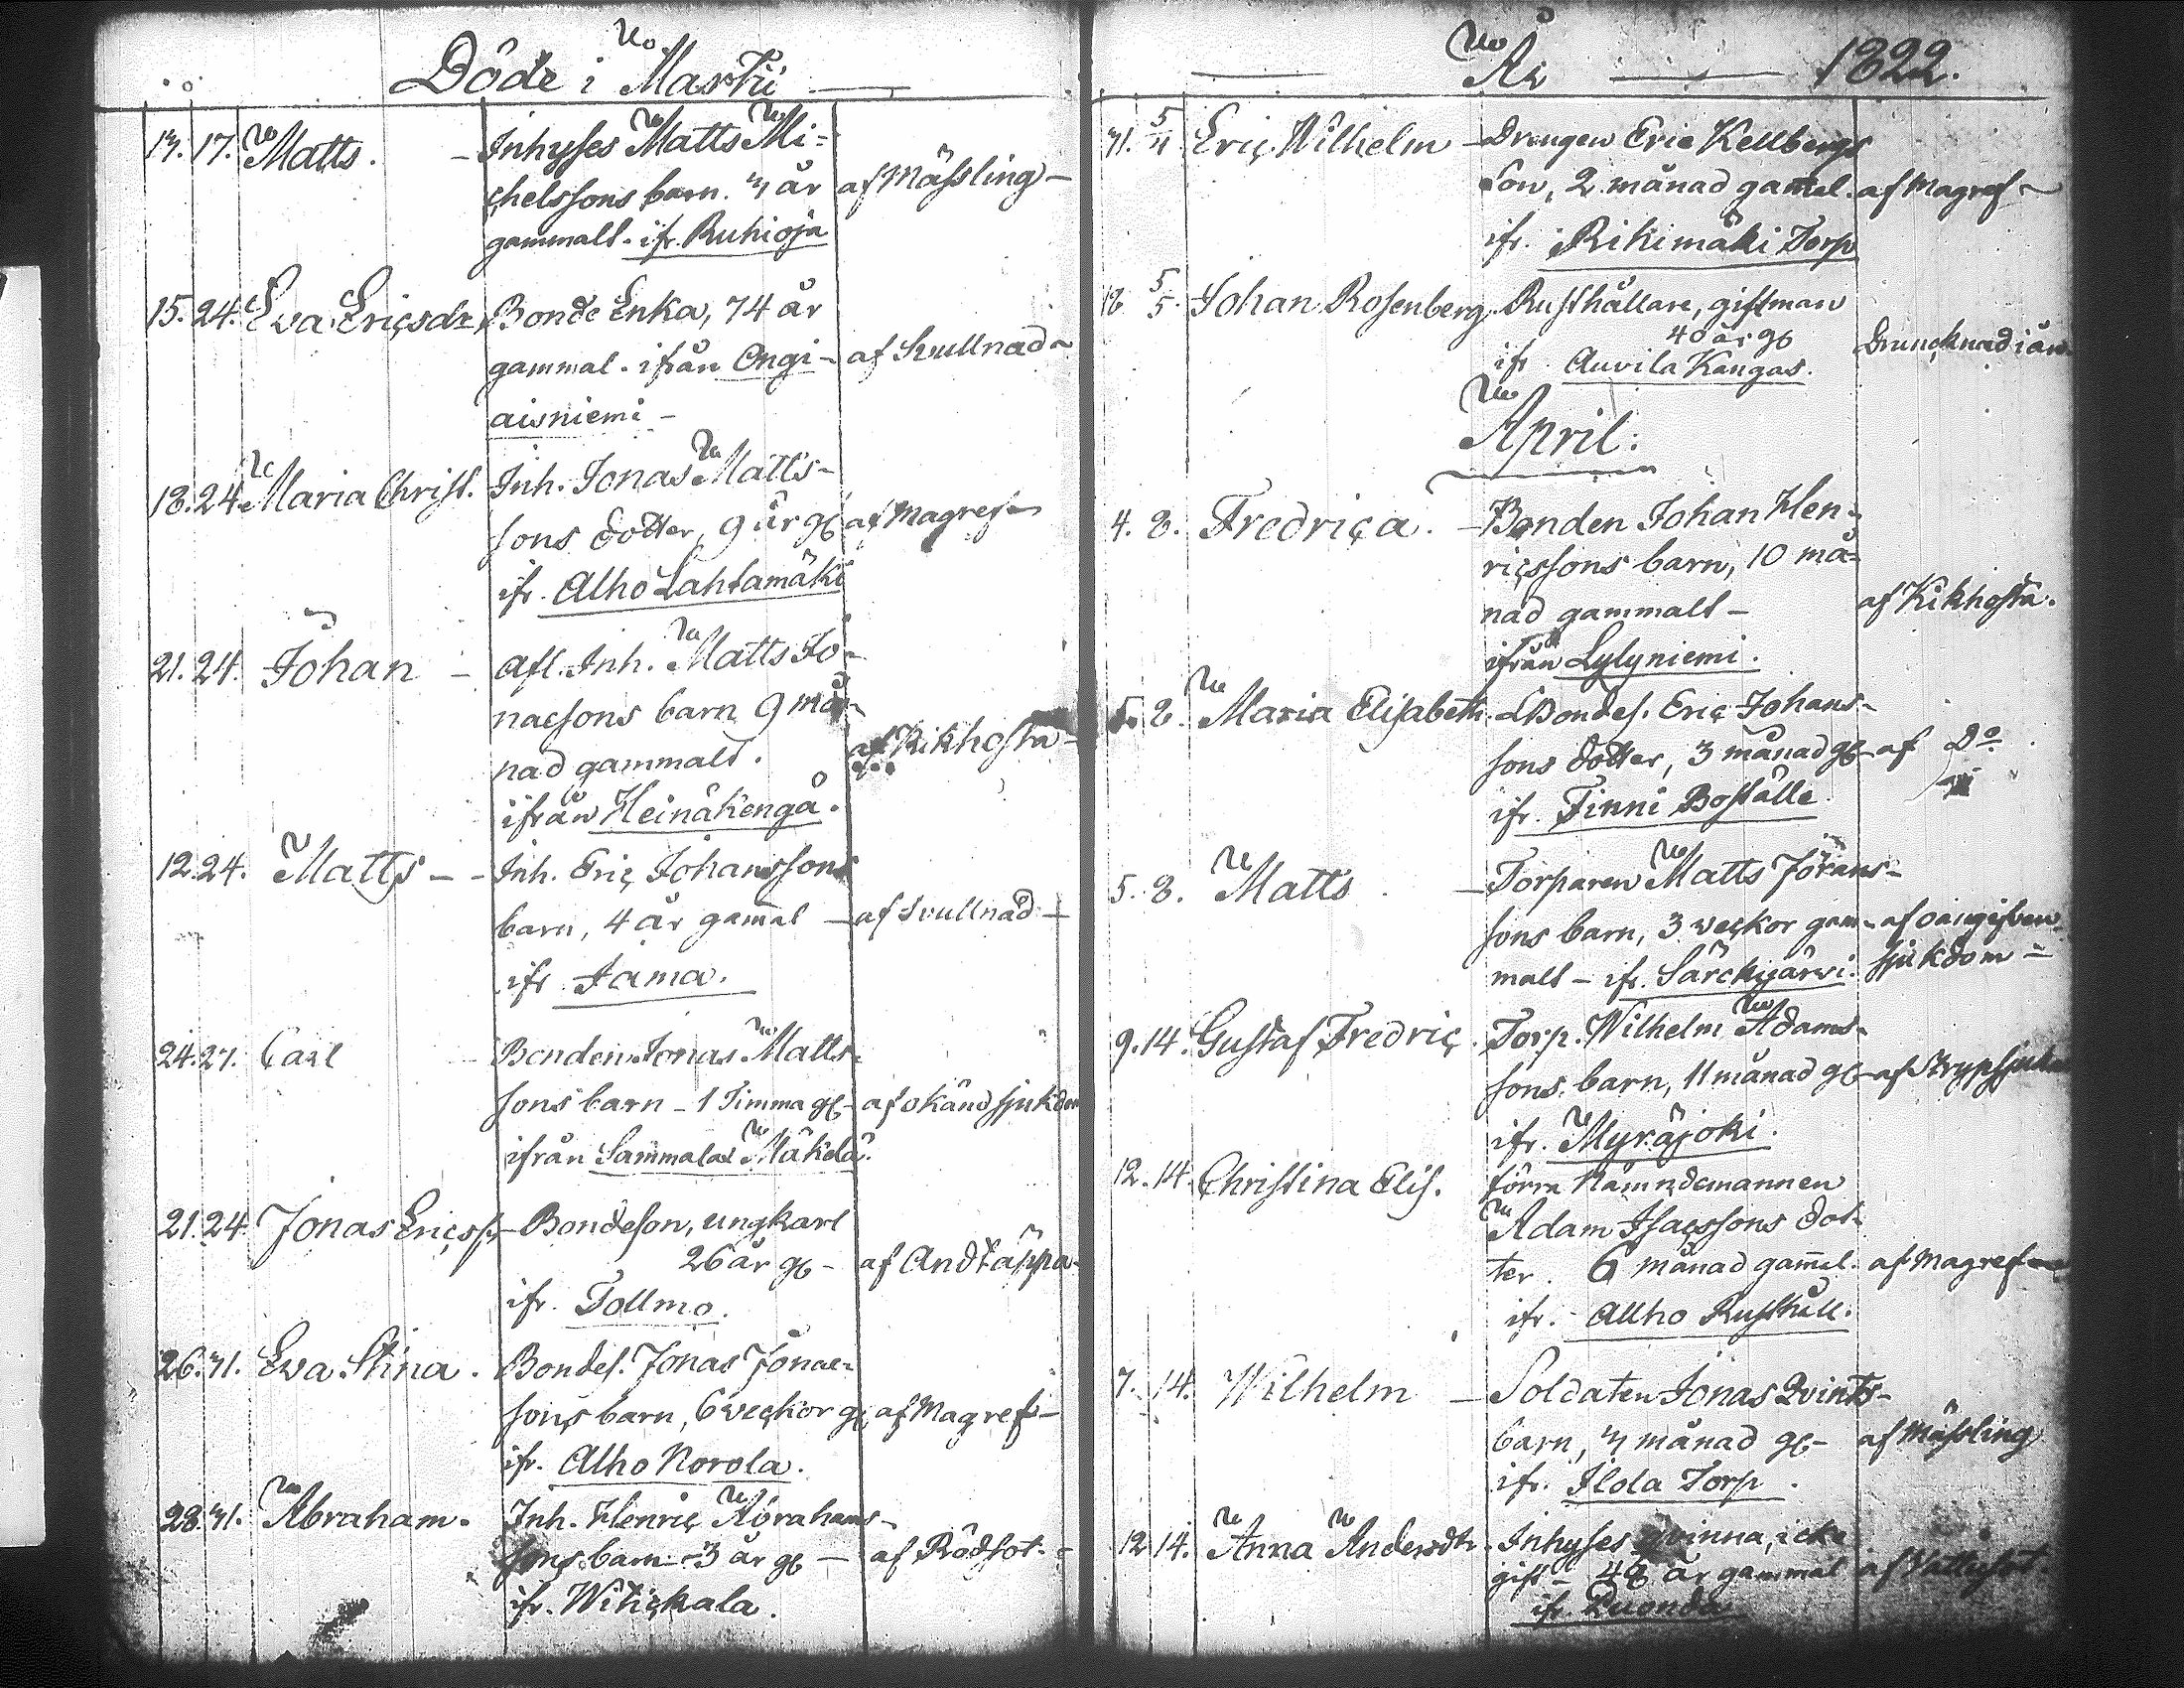 Döde i Martii
13. 17. Matts. – Inhyses Matts Mi=
chelssons barn. 3 år af Mässling –
gammalt. ifr. Ruhioja
15. 24. Eva Ericsdr, Bonde Enka, 74 år
gammal. ifrån Ongi – af Svullnad
aisniemi –
18. 24. Maria Christ. Inh. Jonas Matts-
sons dotter, 9 år gl af Magref
ifr. Alho Lahtamäki
21. 24. Johan – Afl. Inh. Matts Jo-
naesons barn 9 må-
nad gammalt. af Kikhosta –
ifrån Heinäkengä.
12. 24. Matts – – Inh. Eric Johanssons
barn, 4 år gamal – af Svullnad –
ifr. Jama.
24. 27. Carl Bonden Jonas Matts-
sons barn – 1 Timma gl – af okänd sjukdom
ifrån Sammalas Mäkelä.
21. 24. Jonas Ericss. – Bondeson, ungkarl
26 år gl – af Andtäppa.
ifr. Tollmo.
26. 31. Eva Stina. Bondes. Jonas Jonae-
sons barn, 6 veckor gl af Magref –
ifr. Alho Norola.
28. 31. Abraham. Inh. Henric Abrahams-
sons barn – 3 år gl – af Rödsot. –
ifr. Witickala.
År 1822.
31. 5/4 Eric Wilhelm – Drengen Eric Kellbergs
Son, 2 månad gamal. af Magref
ifr. Rikimäki Torp
18 5/5. Johan Rosenberg. Rusthållare, giftman
40 år gl
ifr. Auvila Kangas. Druncknad i ån
April.
4. 8. Fredrica. – Bonden Johan Hen-
ricssons barn, 10 må-
nad gammalt – af Kikhosta.
ifrån Lylyniemi.
5. 8. Maria Elisabeth. Bondes. Eric Johans-
sons dotter, 3 månad gl – af Do
ifr. Finni Boställe.
5. 8. Matts – Torparen Matts Jörans-
sons barn, 3 veckor gam- af oangifven
malt – ifr. Särckijärvi. sjukdom –
9. 14. Gustaf Fredric. Torp. Wilhelm Adams-
sons barn, 11 månad gl – af Strypsjuka
ifr. Myräjoki.
12. 14. Christina Elis. förra Nämndemannen
Adam Isacssons dot-
ter. 6 månad gamal. af Magref
ifr. Allho Rusthåll.
7. 14. Wilhelm – Soldaten Jonas Qvints-
barn, 3 månad gl – af Mässling
ifr. Ilola Torp.
12 14. Anna Andersdr. Inhyses qvinna, icke
gift – 48 år gammal af Vattusot
ifr.